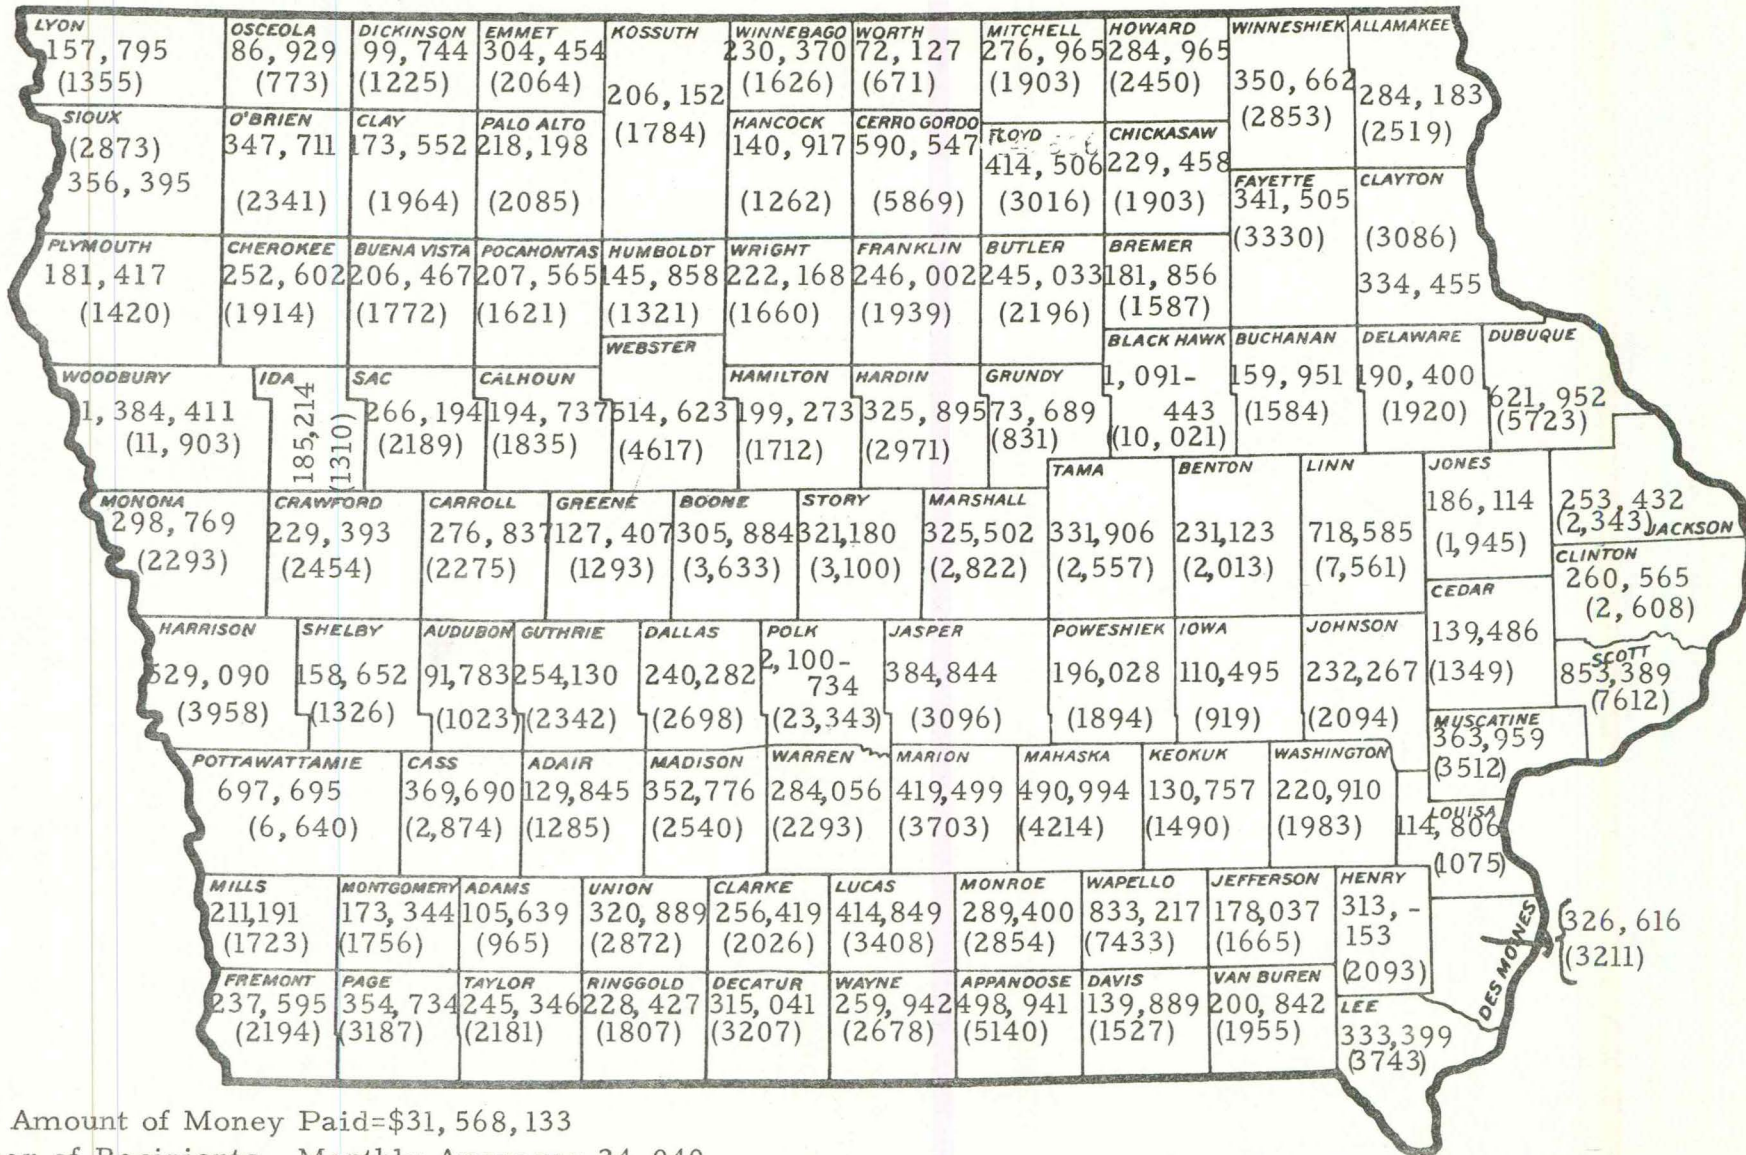 LYON
157,795
(1355)
OSCEOLA
86,929
(773)
DICKINSON
99,744
(1225)
EMMET
304,454
(2064)
KOSSUTH
206,152
(1784)
WINNEBAGO
230,370
(1626)
WORTH
72,127
(671)
MITCHELL
276,965
(1903)
HOWARD
284,965
(2450)
WINNESHIEK
350,662
(2853)
ALLAMAKEE
284,183
(2519)
SIOUX
(2873)
356,395
O'BRIEN
347,711
(2341)
CLAY
173,552
(1964)
PALO ALTO
218,198
(2085)
HANCOCK
140,917
(1262)
CERRO GORDO
590,547
(5869)
FLOYD
414,506
(3016)
CHICKASAW
229,458
(1903)
FAYETTE
341,505
(3330)
CLAYTON
(3086)
334,455
PLYMOUTH
181,417
(1420)
CHEROKEE
252,602
(1914)
BUENA VISTA
206,467
(1772)
POCAHONTAS
207,565
(1621)
HUMBOLDT
145,858
(1321)
WRIGHT
222,168
(1660)
FRANKLIN
246,002
(1939)
BUTLER
245,033
(2196)
BREMER
181,856
(1587)
WOODBURY
1,384,411
(11,903)
IDA
185,214
(1310)
SAC
266,194
(2189)
CALHOUN
194,737
(1835)
WEBSTER
514,623
(4617)
HAMILTON
199,273
(1712)
HARDIN
325,895
(2971)
GRUNDY
73,689
(831)
BLACK HAWK
1,091-
443
(10,021)
BUCHANAN
159,951
(1584)
DELAWARE
190,400
(1920)
DUBUQUE
621,952
(5723)
MONONA
298,769
(2293)
CRAWFORD
229,393
(2454)
CARROLL
276,837
(2275)
GREENE
127,407
(1293)
BOONE
305,884
(3,633)
STORY
321,180
(3,100)
MARSHALL
325,502
(2,822)
TAMA
331,906
(2,557)
BENTON
231,123
(2,013)
LINN
718,585
(7,561)
JONES
186,114
(1,945)
253,432
(2,343) JACKSON
CLINTON
260,565
(2,608)
CEDAR
139,486
(1349)
HARRISON
529,090
(3958)
SHELBY
158,652
(1326)
AUDUBON
91,783
(1023)
GUTHRIE
254,130
(2342)
DALLAS
240,282
(2698)
POLK
2,100-
734
(23,343)
JASPER
384,844
(3096)
POWESHIEK
196,028
(1894)
IOWA
110,495
(919)
JOHNSON
232,267
(2094)
SCOTT
853,389
(7612)
MUSCATINE
363,959
(3512)
POTTAWATTAMIE
697,695
(6,640)
CASS
369,690
(2,874)
ADAIR
129,845
(1285)
MADISON
352,776
(2540)
WARREN
284,056
(2293)
MARION
419,499
(3703)
MAHASKA
490,994
(4214)
KEOKUK
130,757
(1490)
WASHINGTON
220,910
(1983)
LOUISA
114,806
(1075)
MILLS
211,191
(1723)
MONTGOMERY
173,344
(1756)
ADAMS
105,639
(965)
UNION
320,889
(2872)
CLARKE
256,419
(2026)
LUCAS
414,849
(3408)
MONROE
289,400
(2854)
WAPELLO
833,217
(7433)
JEFFERSON
178,037
(1665)
HENRY
313,-
153
(2093)
DES MOINES
326,616
(3211)
FREMONT
237,595
(2194)
PAGE
354,734
(3187)
TAYLOR
245,346
(2181)
RINGGOLD
228,427
(1807)
DECATUR
315,041
(3207)
WAYNE
259,942
(2678)
APPANOOSE
498,941
(5140)
DAVIS
139,889
(1527)
VAN BUREN
200,842
(1955)
LEE
333,399
(3743)
Amount of Money Paid=$31,568,133
of Recipients Monthly Average